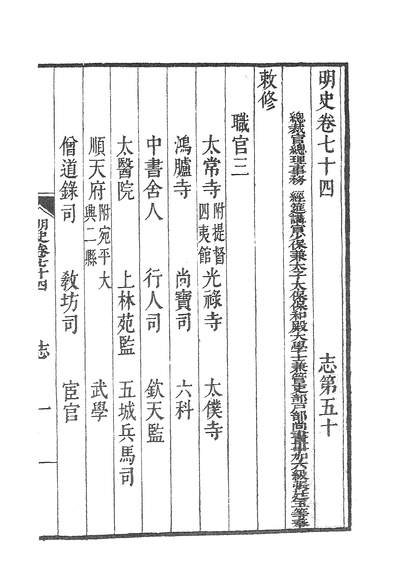 明史卷七十四 志第五十
總裁官總理事務 經筵講官少保兼太子太保保和殿大學士兼管吏部戶部尚書事加六級張廷玉等奉
敕修
職官三
太常寺 附提督四夷館 光祿寺 太僕寺
鴻臚寺 尚寶司 六科
中書舍人 行人司 欽天監
太醫院 上林苑監 五城兵馬司
順天府 附宛平大興二縣 武學
僧道錄司 敎坊司 宦官
明史卷七十四 志 一